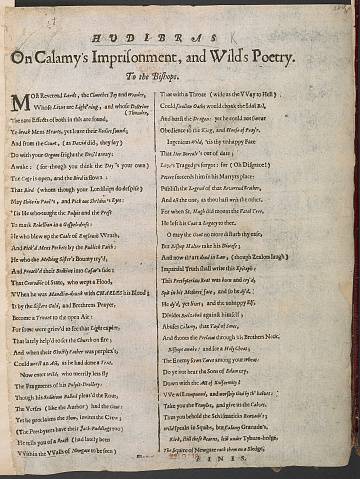 HUDIBRAS
On Calamy's Imprisonment, and Wild's Poetry.
To the Bishops.
MOst Reverend Lords, the Churches Joy and Wonder,
Whose Lives are Lightning, and whose Doctrine
Thunder,
The rare Effects of both in this are found,
Ye break Mens Hearts, yet leave their Bodies sound;
And from the Court, (as David did, they say)
Do with your Organs fright the Devil away.
Awake: (for though you think the Day's your own)
The Cage is open, and the Bird is flown:
That Bird (whom though your Lordships do despise)
May shite in Paul's, and Pick out Sheldon's Eyes:
'Tis He who taught the Pulpit and the Press
To mask Rebellion in a Gospel-dress:
He who blew up the Coals of Englands Wrath,
And Pick'd Mens Pockets by the Publick Faith:
He who the Melting Sister's Bounty try'd,
And Preach'd their Bodkins into Cæsar's side:
That Crocodile of State, who wept a Flood,
When he was Maudlin-drunk with CHARLES his Blood;
Is by the Sisters Gold, and Brethrens Prayer,
Become a Tenant to the open Air:
For some were griev'd to see that Light expire,
That lately help'd to set the Church on fire;
And when their Ghostly Father was perplex't,
Could wrest an Act, as he had done a Text.
Now enter Wild, who merrily lets fly
The Fragments of his Pulpit-Drollery:
Though his Seditious Ballad pleas'd the Rout,
The Verses (like the Author) had the Gout:
Yet he proclaims the Show, invites the Crew;
(The Presbyters have their Jack-Pudding too)
He tells you of a Beast (had lately been
Within the Walls of Newgate to be seen)
That with a Throat (wide as the Way to Hell)
Could swallow Oaths would choak the Idol Bel,
And burst the Dragon: yet he could not swear
Obedience to the King, and House of Pray'r.
Ingenious Wild, 'tis thy unhappy Fate
That Iter Boreale's out of date;
Love's Tragedy's forgot: for (Oh Disgrace!)
Peters succeeds him in his Martyrs place:
Publish the Legend of that Reverend Brother,
And act the one, as thou hast writ the other.
For when St. Hugh did mount the Fatal Tree,
He left his Coat a Legacy to thee.
O may the Gout no more disturb thy ease,
But Bishop Halter take his Diocese;
And now thou art dead in Law, (though Zealots laugh)
Impartial Truth shall write this Epitaph:
This Presbyterian Brat was born and cry'd,
Spit in his Mothers face, and so he dy'd;
He dy'd, yet lives, and the unhappy Elf,
Divides Beelzebub against himself;
Abuses Calamy, that Tayl of Smec,
And shoots the Prelate through his Brethren Neck.
Bishops awake: and see a Holy Cheat,
The Enemy sows Tares among your Wheat.
Do ye not hear the Sons of Edom cry,
Down with the Act of Uniformity?
We will compound, and worship God by th' halves:
Take you the Temples, and give us the Calves.
Thus you behold the Schismaticks Bravado's;
Wild speaks in Squibs, but Calamy Granado's.
Kirk, still these Bears, left under Tyburn-hedge,
The Squire of Newgate rock them on a Sledge.
FINIS.